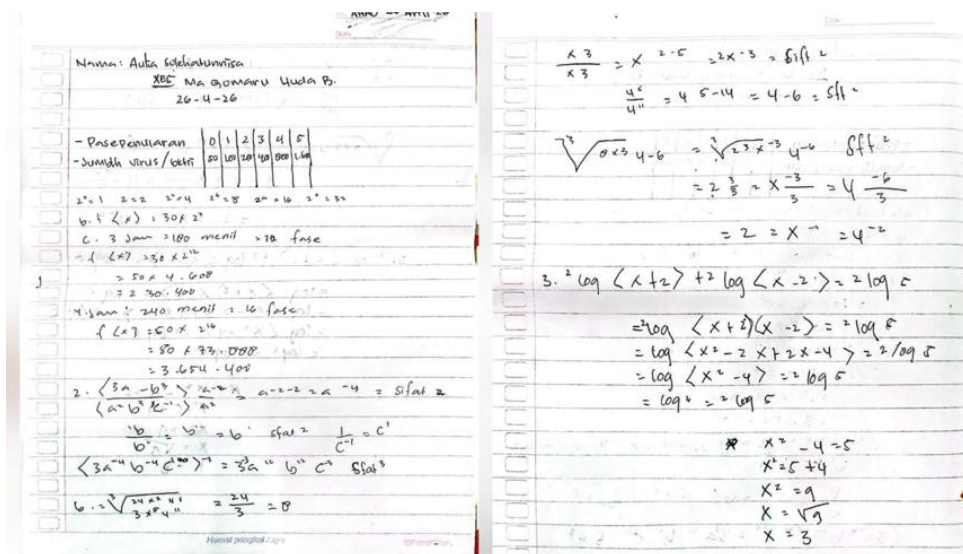 Nama: Aulia Solehatunnisa
XE5 Ma Qomarul Huda B.
26-4-26
- Fase penularan | 0 | 1 | 2 | 3 | 4 | 5
- Jumlah virus/bakteri | 50 | 100 | 20 | 40 | 800 | 1.60
2⁰=1 2=2 2²=4 2³=8 2⁴=16 2⁵=32
b. f (x) = 30 x 2ˣ
c. 3 Jam = 180 menit = 12 fase
f (x) = 30 x 2¹²
= 50 x 4.608
= 230.400
4 jam = 240 menit = 16 fase
f (x) = 50 x 2¹⁶
= 50 x 73.088
= 3.654.400
2. (3a⁻²b³) / (a²b c⁻¹) a⁻²/a² = a⁻²⁻² = a⁻⁴ = Sifat 2
b/b = b = b sfat 2 1/c⁻¹ = c¹
(3a⁻⁴ b⁻⁴ c)⁻¹ = 3 a b c Sfat 3
6. = ³√24 x² y⁵ / 3 x⁵ y¹¹ = 24/3 = 8
Hormat pangkal kaya
x3/x3 = x ²⁻⁵ = 2x⁻³ = Sift 2
y⁵/y¹¹ = 4 ⁵⁻¹⁴ = 4-6 = Sft ²
³√8x3 y-6 = ³√2³ x⁻³ y⁻⁶ Sft ²
= 2 3/3 = x -3/3 = y -6/3
= 2 = x⁻¹ = y⁻²
3. ²log (x+2) + 2 log (x-2) = 2 log 5
= ²log (x+2)(x-2) = ²log 5
= log (x²-2x+2x-4) = 2 log 5
= log (x²-4) = ²log 5
= log⁴ = ² log 5
x² -4 = 5
x² = 5 + 4
x² = 9
x = √9
x = 3